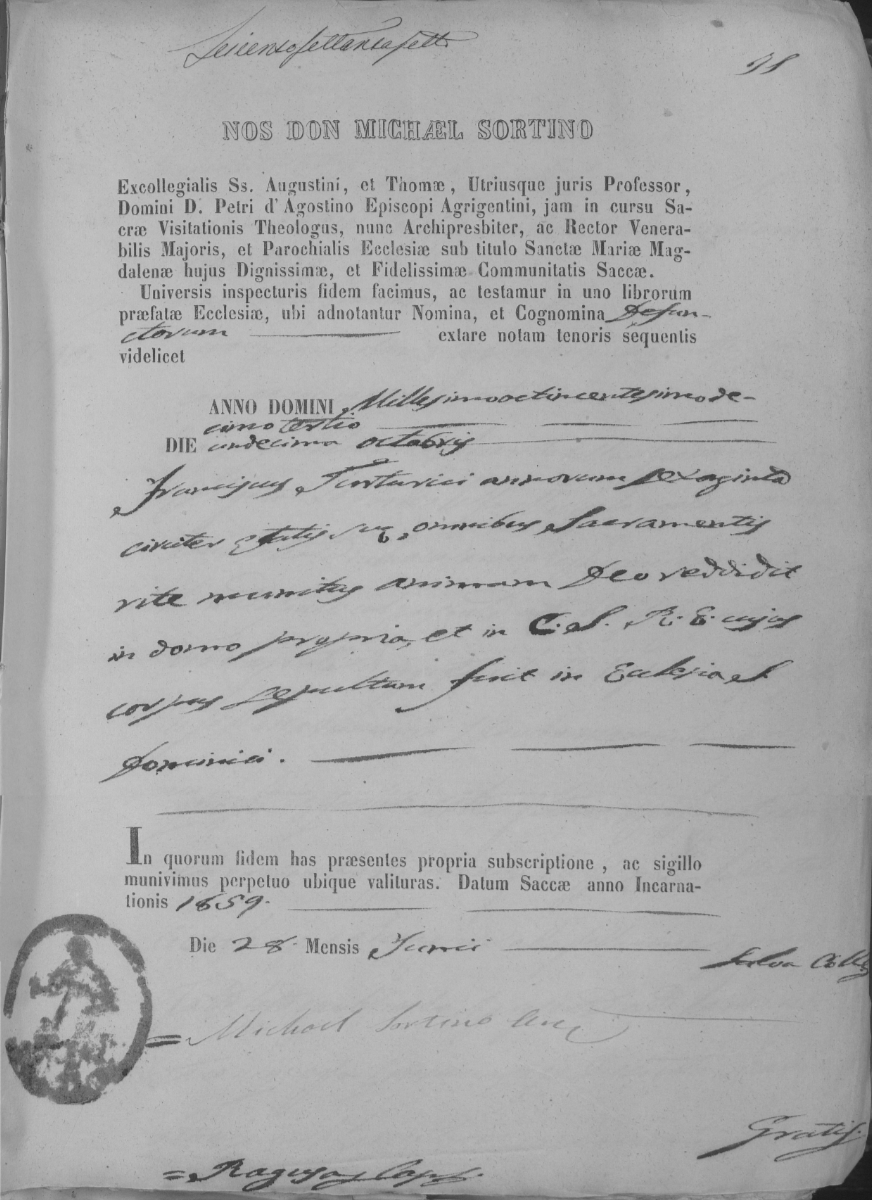 Seicensosettantasette
98
NOS DON MICHÆL SORTINO
Excollegialis Ss. Augustini, et Thomæ, Utriusque juris Professor,
Domini D. Petri d'Agostino Episcopi Agrigentini, jam in cursu Sa-
cræ Visitationis Theologus, nunc Archipresbiter, ac Rector Venera-
bilis Majoris, et Parochialis Ecclesiæ sub titulo Sanctæ Mariæ Mag-
dalenæ hujus Dignissimæ, et Fidelissimæ Communitatis Saccæ.
Universis inspecturis fidem facimus, ac testamur in uno librorum
præfatæ Ecclesiæ, ubi adnotantur Nomina, et Cognomina Defun-
ctorum extare notam tenoris sequentis
videlicet
ANNO DOMINI Millesimooctincentesimode-
cimotertio
DIE undecima octobris
Franciscus annorum sexaginta
circiter etatis suę, omnibus Sacramentis
rite munitus animam Deo reddidit
in domo propria, et in C. S. R. E. cujus
corpus sepultum fuit in Ecclesia S.
Dominici.
In quorum fidem has præsentes propria subscriptione, ac sigillo
munivimus perpetuo ubique valituras. Datum Saccæ anno Incarna-
tionis 1859.
Die 28 Mensis Junii
Salvo Coll
= Michael Sortino
Gratis.
= Ragusa